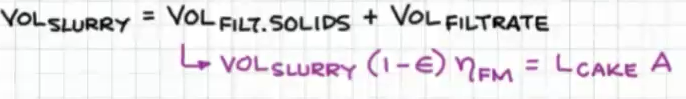 VOLSLURRY = VOLFILT.SOLIDS + VOLFILTRATE
↳ VOLSLURRY (1-ϵ) ηFM = LCAKE A